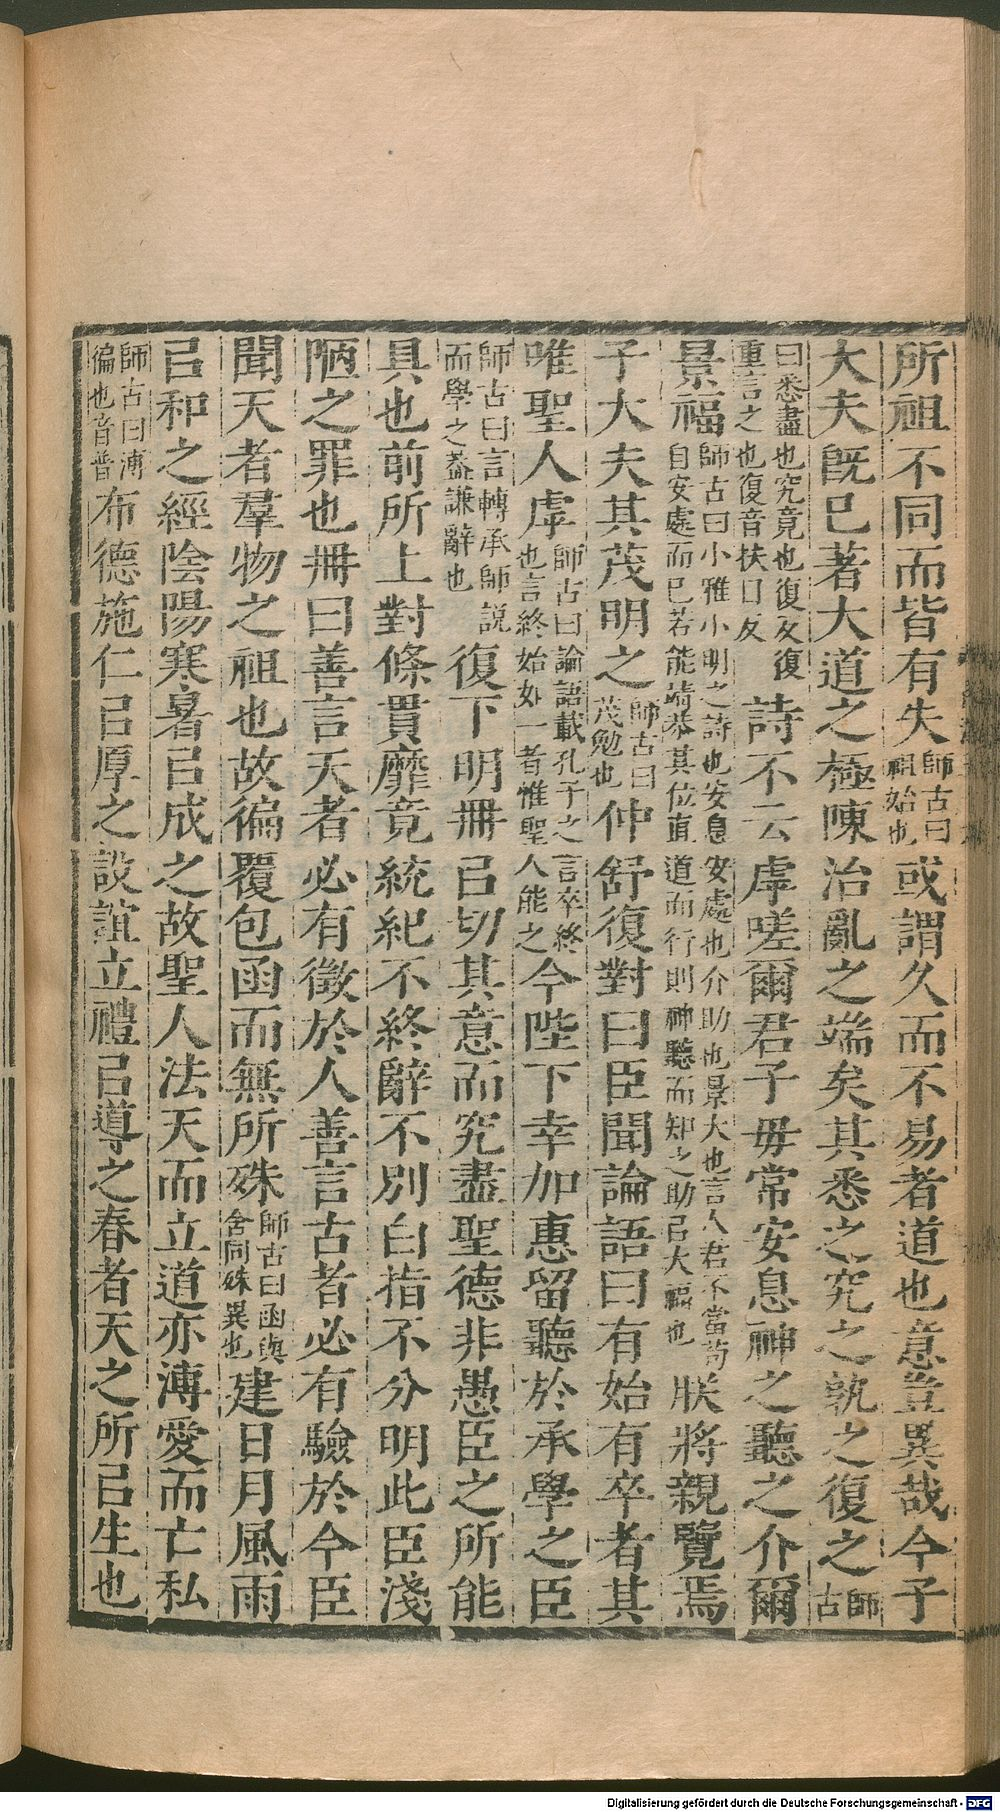 所祖不同而皆有失師古曰祖始也或謂久而不易者道也意豈異哉今子
大夫旣已著大道之極陳治亂之端矣其悉之究之孰之復之師古
曰悉盡也究竟也復反復重言之也復音扶目反詩不云虖嗟爾君子毋常安息神之聽之介爾
景福師古曰小雅小明之詩也安息安處也介助也景大也言人君不當苟自安處而已若能靖恭其位直道而行則神聽而知之助㠯大福也朕將親覽焉
子大夫其茂明之師古曰茂勉也仲舒復對曰臣聞論語曰有始有卒者其
唯聖人虖師古曰論語載孔子之言卒終也言終始如一者惟聖人能之今陛下幸加惠留聽於承學之臣
師古曰言轉承師說而學之葢謙辭也復下明冊㠯切其意而究盡聖德非愚臣之所能
具也前所上對條貫靡竟統紀不終辭不別白指不分明此臣淺
陋之罪也冊曰善言天者必有徵於人善言古者必有驗於今臣
聞天者羣物之祖也故徧覆包函而無所殊師古曰函與含同殊異也建日月風雨
㠯和之經陰陽寒暑㠯成之故聖人法天而立道亦溥愛而亡私
師古曰溥徧也音普布德施仁㠯厚之設誼立禮㠯導之春者天之所㠯生也
Digitalisierung gefördert durch die Deutsche Forschungsgemeinschaft - DFG